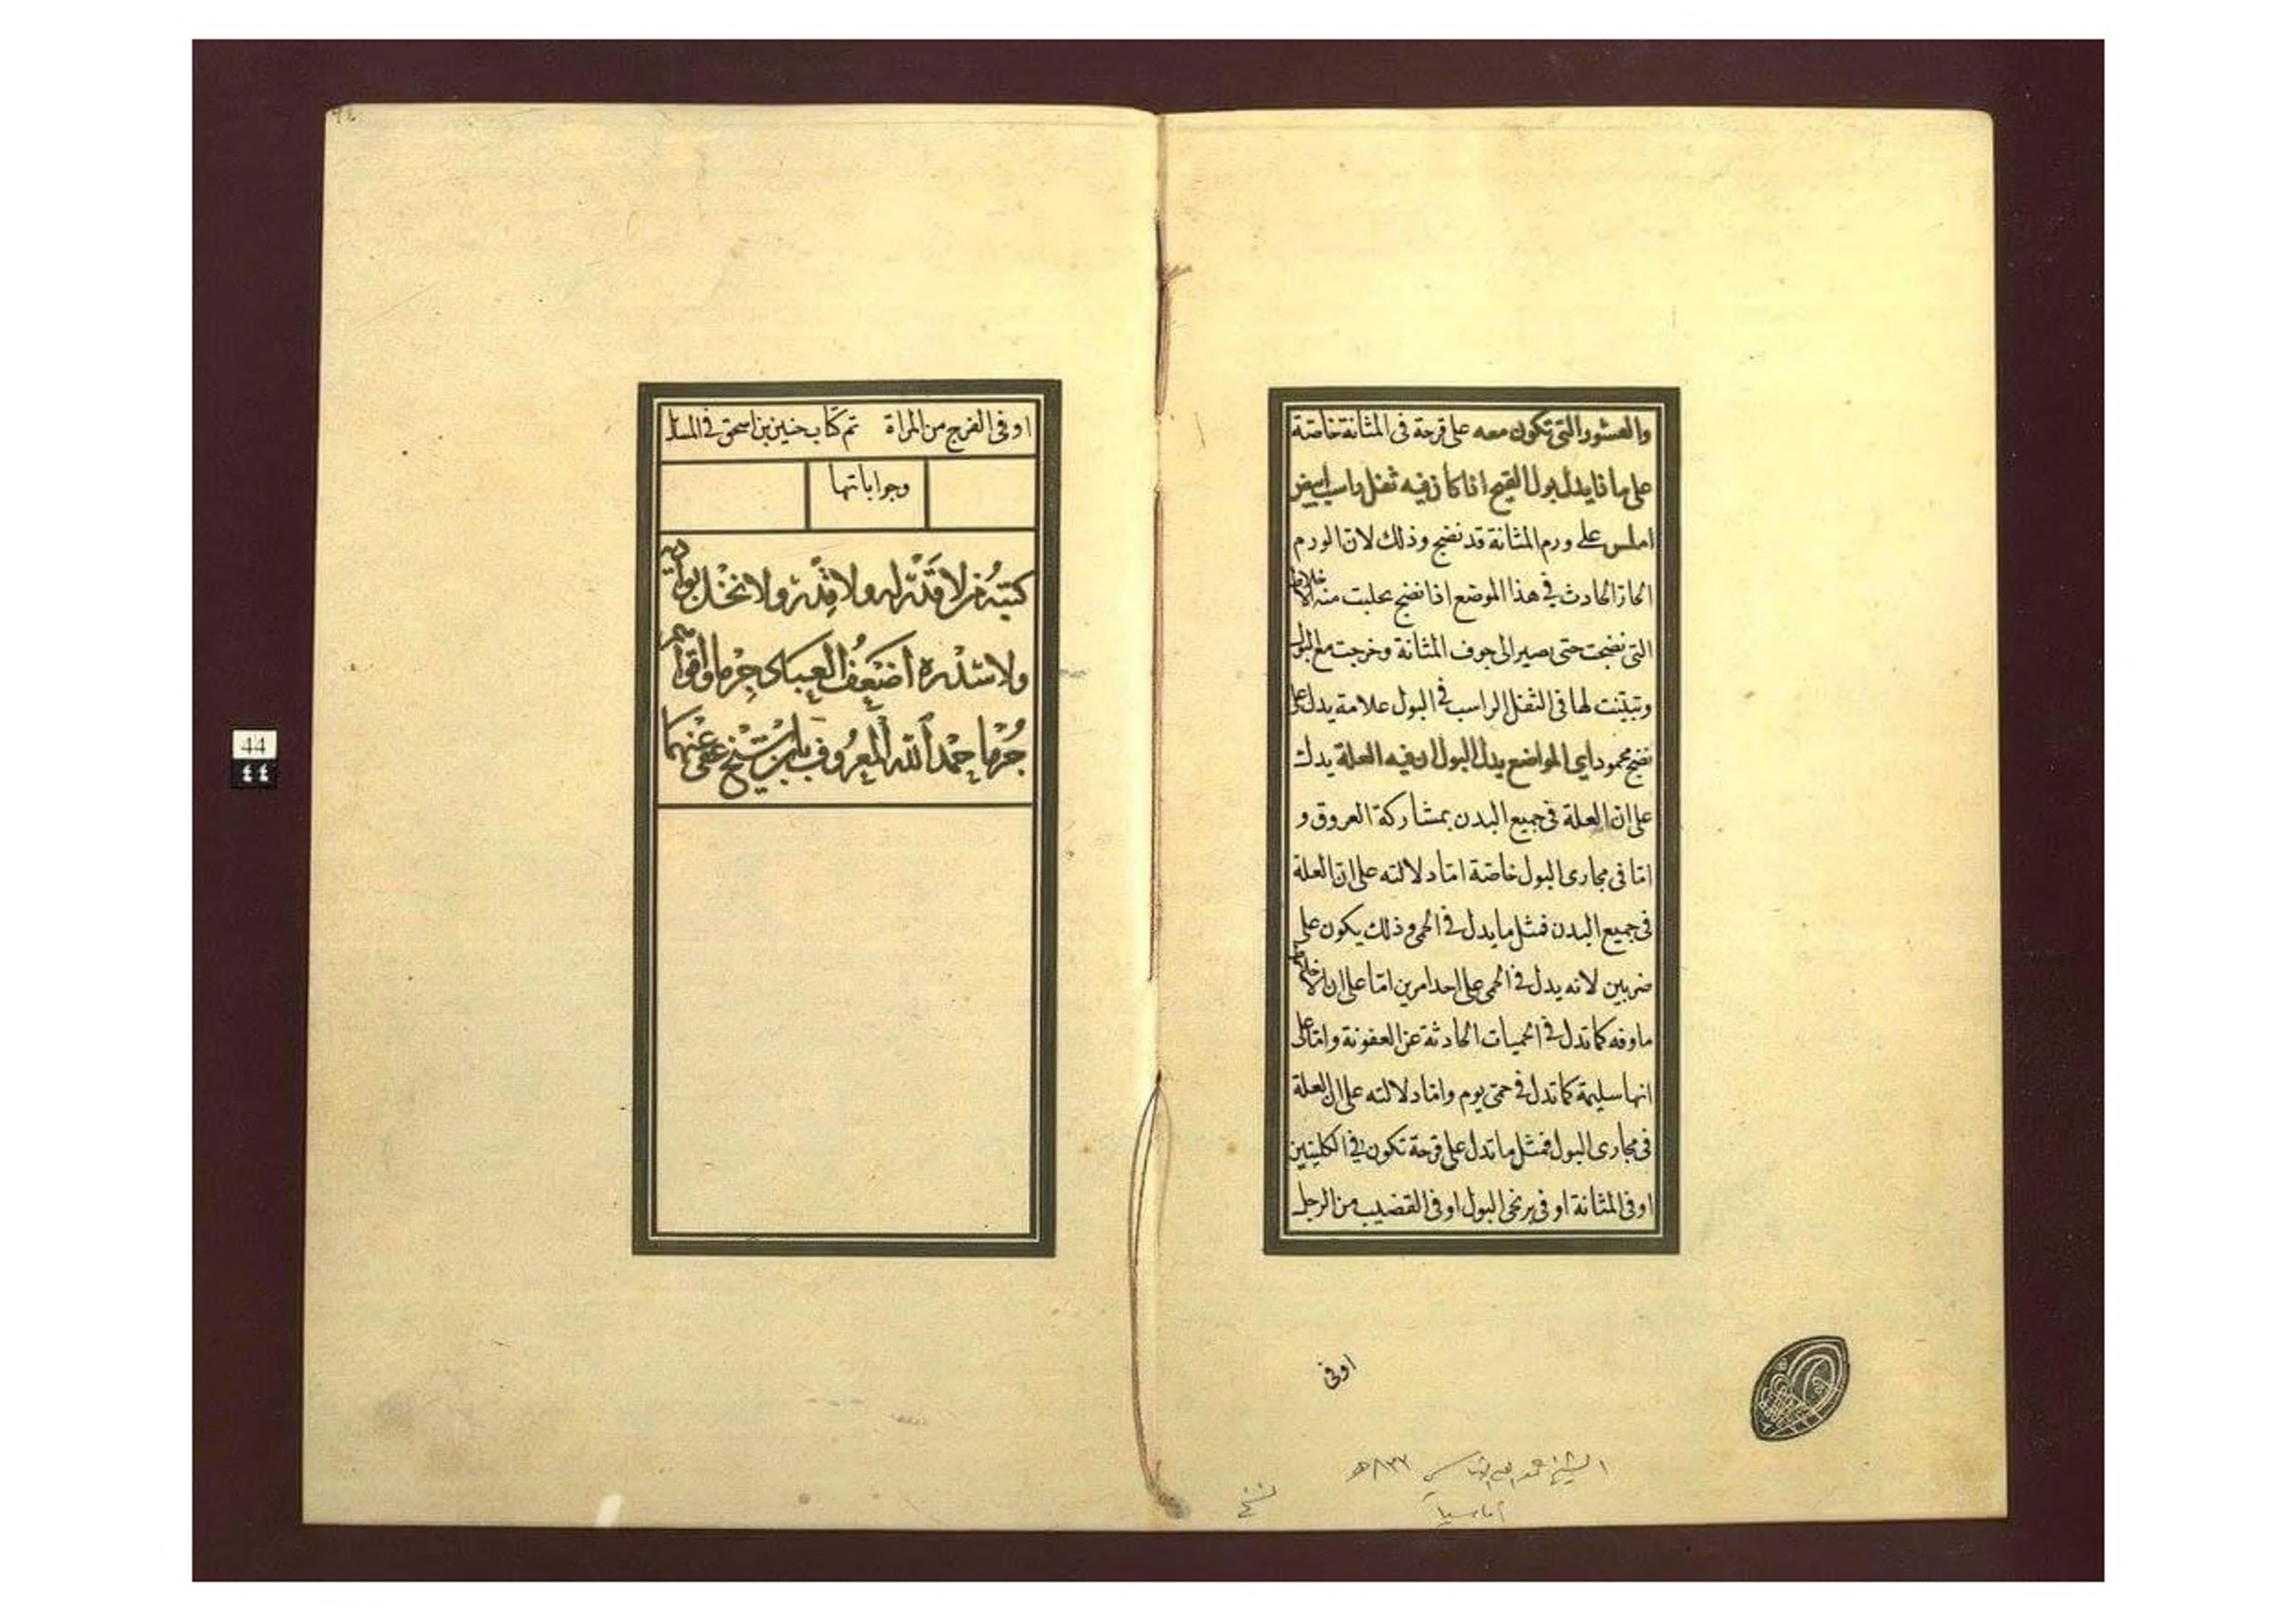 والقشور التى تكون معه على قرحة فى المثانة خاصّة
على ماذا يدل بول القيح اذا كان فيه ثفل راسب ابيض
املس على ورم المثانة قد نضج وذلك لان الورم
الحار الحادث فى هذا الموضع اذا نضج تحلبت منه الاخلاط
التى نضجت حتى يصير الى جوف المثانة وخرجت مع البول
وتبيّنت لها فى الثفل الراسب فى البول علامة يدل على
نضج محمود اى المواضع يدل البول ان فيه العلة يدل
على ان العلة فى جميع البدن بمشاركة العروق و
امّا فى مجارى البول خاصّة امّا دلالته على ان العلة
فى جميع البدن فمثل ما يدل فى الحمى وذلك يكون على
ضربين لانه يدل فى الحمى على احد امرين امّا على ان الاخلاط
ماوفه كما تدل فى الحميات الحادثة عن العفونة وامّا على
انها سليمة كما تدل فى حمّى يوم وامّا دلالته على ان العلة
فى مجارى البول فمثل ما تدل على قرحة تكون فى الكليتين
او فى المثانة او فى برنخى البول او فى القضيب من الرجل
اوفى
الشيخ حمد الله الاماسي ٨٣٣هـ
أماسيا
نسخ
او فى الفرج من المراة تم كتاب حنين بن اسحق فى المسائل
وجواباتها
كتبه من لا قدر له ولا قدر ولا نخل بواديه
ولا سدره اضعف العباد جرما واقواهم
جرما حمد الله المعروف بابن الشيخ عفى عنهما
44
٤٤